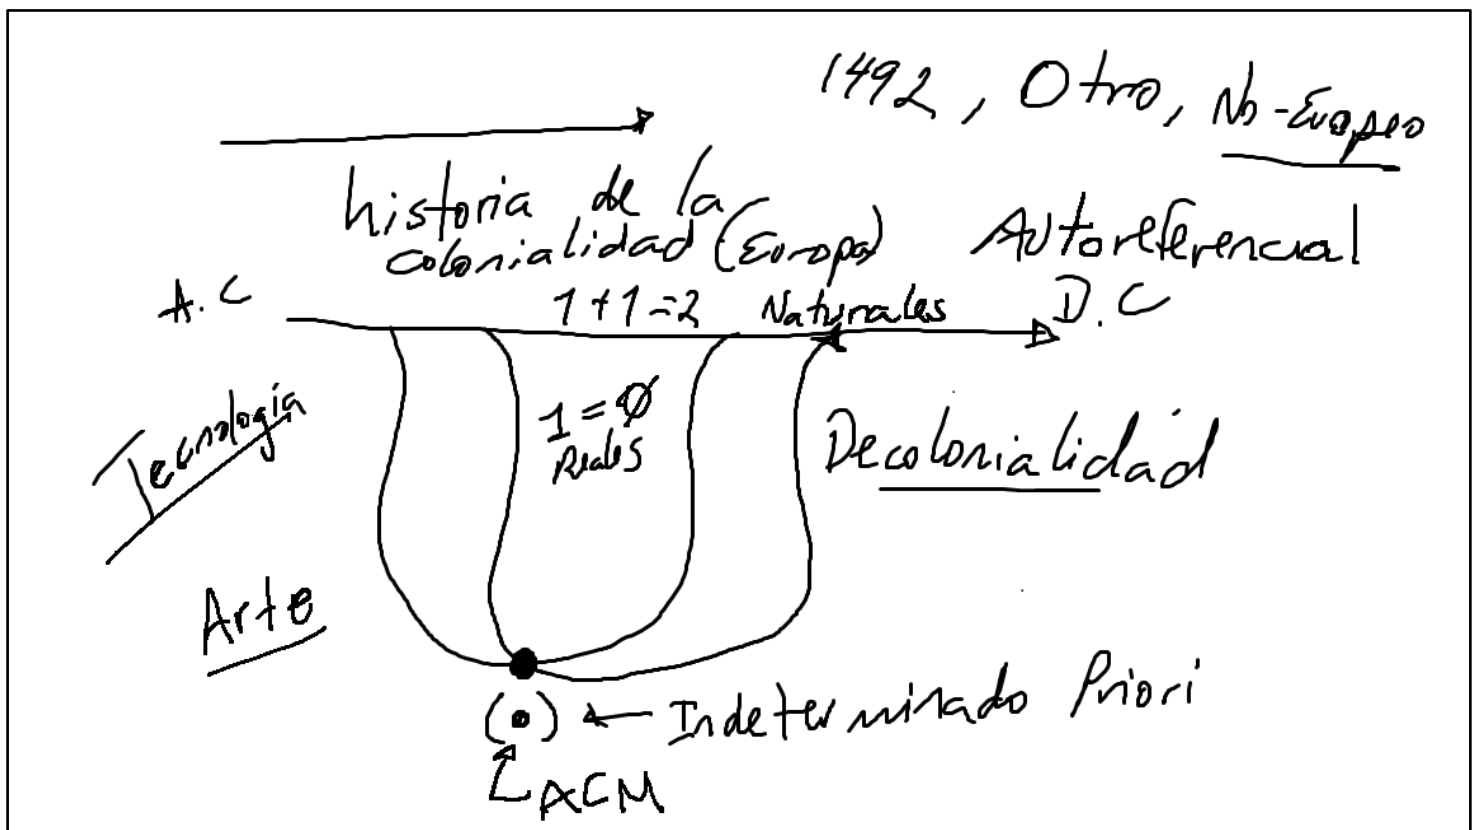 1492, Otro, No-Europeo
historia de la
colonialidad (Europa)
Autoreferencial
A.C
1+1=2
Naturales
D.C
Tecnología
1=Ø
Reales
Decolonialidad
Arte
(•) ← Indeterminado Priori
ACM